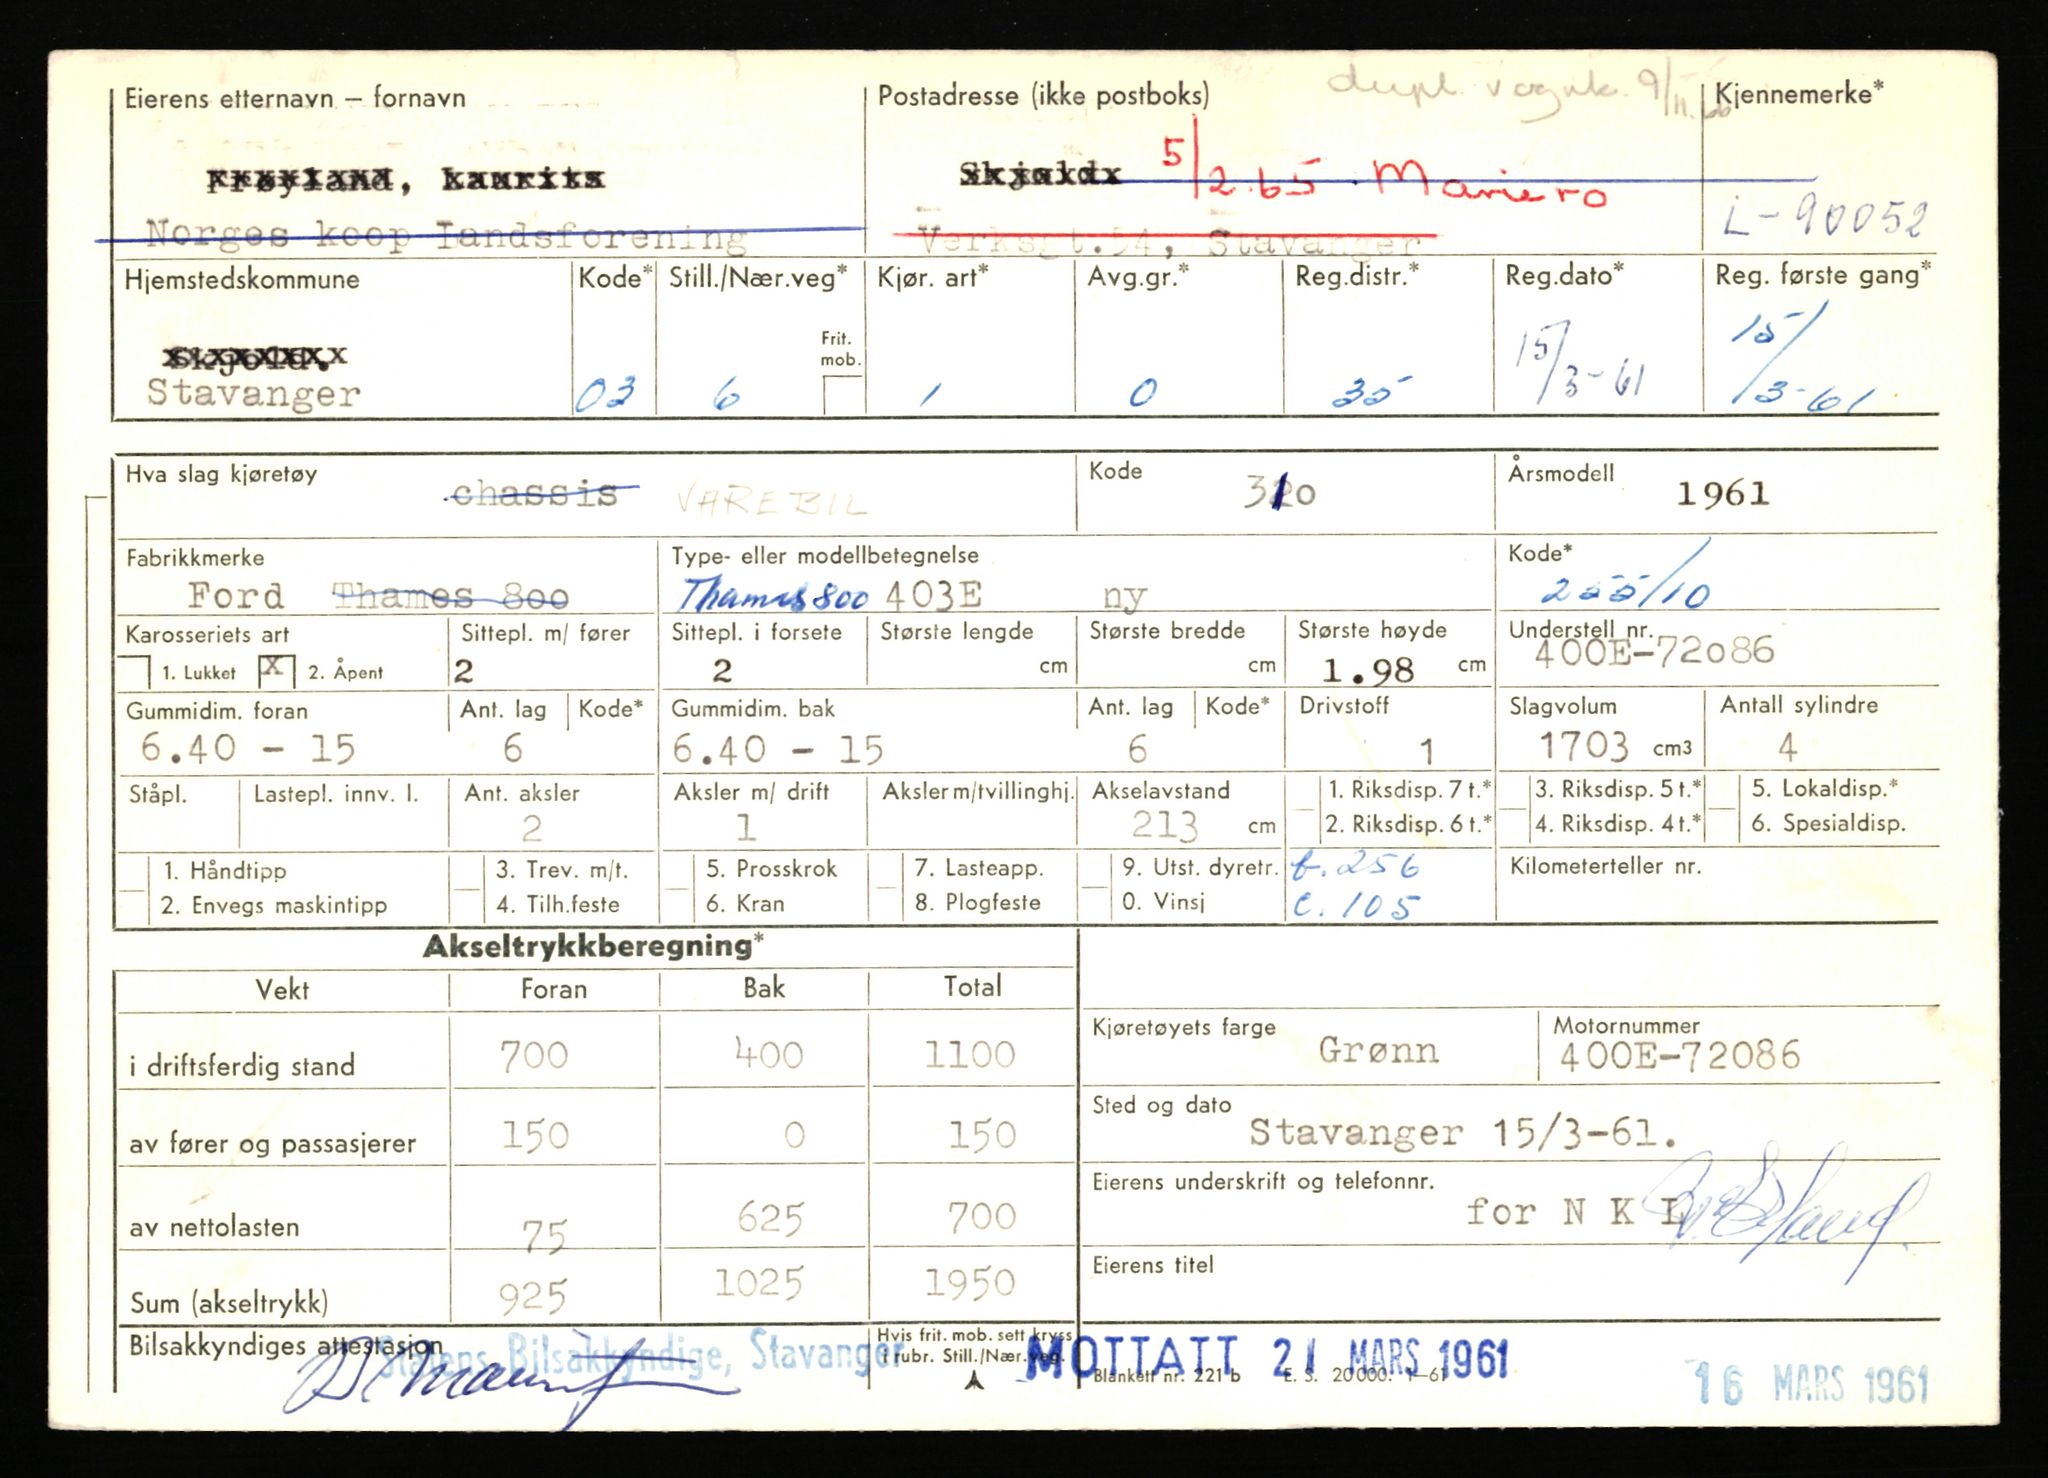 dupl. vognk. 9/11.66
Eierens etternavn – fornavn
Postadresse (ikke postboks)
Kjennemerke*
Frøyland, Laurits
Skjold
5/2.65 Mariero
Norges koop landsforening
Verksgt.54, Stavanger
L-90052
Hjemstedskommune
Kode*
Still./Nær.veg*
Kjør. art*
Avg.gr.*
Reg.distr.*
Reg.dato*
Reg. første gang*
Frit. mob.
Skjold.
Stavanger
03
6
1
0
35
15/3-61
15/3-61
Hva slag kjøretøy
chassis VAREBIL
Kode
310
Årsmodell
1961
Fabrikkmerke
Ford Thames 800
Type- eller modellbetegnelse
Thames 800 403E ny
Kode*
255/10
Karosseriets art
1. Lukket X 2. Åpent
Sittepl. m/ fører
2
Sittepl. i forsete
2
Største lengde
cm
Største bredde
cm
Største høyde
1.98 cm
Understell nr.
400E-72086
Gummidim. foran
6.40 - 15
Ant. lag
6
Kode*
Gummidim. bak
6.40 - 15
Ant. lag
6
Kode*
Drivstoff
1
Slagvolum
1703 cm3
Antall sylindre
4
Ståpl.
Lastepl. innv. l.
Ant. aksler
2
Aksler m/ drift
1
Aksler m/tvillinghj.
Akselavstand
213 cm
1. Riksdisp. 7 t.*
2. Riksdisp. 6 t.*
3. Riksdisp. 5 t.*
4. Riksdisp. 4 t.*
5. Lokaldisp.*
6. Spesialdisp.
1. Håndtipp
2. Envegs maskintipp
3. Trev. m/t.
4. Tilh.feste
5. Prosskrok
6. Kran
7. Lasteapp.
8. Plogfeste
9. Utst. dyretr.
0. Vinsj
b. 256
c. 105
Kilometerteller nr.
Akseltrykkberegning*
Vekt Foran Bak Total
i driftsferdig stand 700 400 1100
av fører og passasjerer 150 0 150
av nettolasten 75 625 700
Sum (akseltrykk) 925 1025 1950
Kjøretøyets farge
Grønn
Motornummer
400E-72086
Sted og dato
Stavanger 15/3-61.
Eierens underskrift og telefonnr.
for N K L
Eierens titel
Bilsakkyndiges attestasjon
Statens Bilsakkyndige, Stavanger
Hvis frit. mob. sett kryss
i rubr. Still./Nær.veg.
MOTTATT 21 MARS 1961
Blankett nr. 221 b E. S. 20000. 1–61
16 MARS 1961